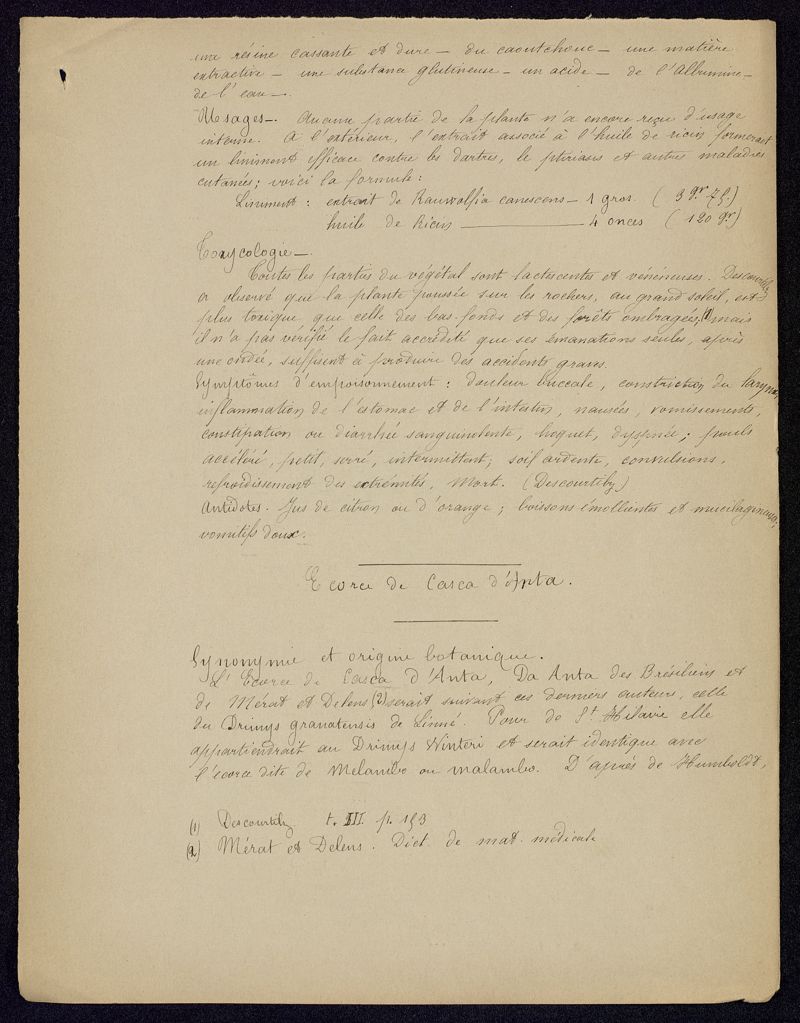 une résine cassante et dure — du caoutchouc — une matière
extractive — une substance glutineuse — un acide — de l'Albumine —
de l'eau —.
Usages —. Aucune partie de la plante n'a encore reçu d'usage
interne. A l'extérieur, l'extrait associé à l'huile de ricin formerait
un liniment efficace contre les dartres, le ptiriasis et autres maladies
cutanés; voici la formule :
Liniment : extrait de Rauwolfia canescens — 1 gros. (3 gr. 75.)
huile de Ricin ——— 4 onces (120 gr)
Toxycologie —.
Toutes les parties du végétal sont lactescentes et vénéneuses. Descourtilz
a observé que la plante poussée sur les rochers, au grand soleil, est
plus toxique que celle des bas-fonds et des forêts ombragées,(1) mais
il n'a pas vérifié le fait accrédité que ses émanations seules, après
une ondée, suffisent à produire des accidents graves.
Symptômes d'empoisonnement : douleur buccale, constriction du larynx,
inflammation de l'estomac et de l'intestin, nausées, vomissements,
constipation ou diarrhée sanguinolente, hoquet, dyspnée; pouls
accéléré, petit, serré, intermittent; soif ardente, convulsions,
refroidissement des extrémités, Mort. (Descourtilz)
Antidotes. Jus de citron ou d'orange; boissons émollientes et mucilagineuses,
vomitifs doux.
Ecorce de Casca d'Anta.
Synonymie et origine botanique.
L'Ecorce de Casca d'Anta, Da Anta des Brésiliens et
de Mérat et Delens (2) serait suivant ces derniers auteurs, celle
du Drimys granatensis de Linné. Pour de St Hilaire elle
appartiendrait au Drimys Winteri et serait identique avec
l'écorce dite de Melambo ou malambo. D'après de Humboldt,
(1) Descourtilz t. III. p. 153
(2) Mérat et Delens. Dict. de mat. médicale